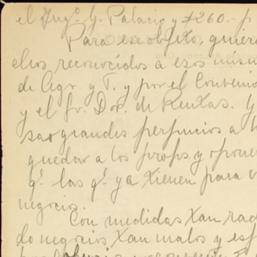 el Ingo. G. Palacio y $260.- p
Para ese objeto, quiere
ellos reconocidos á esos mism
de Agr. y F. y por el Convenio
y el Sr. Dor. de Rentas. Y
sar grandes perjuicios a
quedar a los props. y opone
qe. las qe. ya tienen para
negocio.
Con medidas tan rad
do negocios tan malos y esp